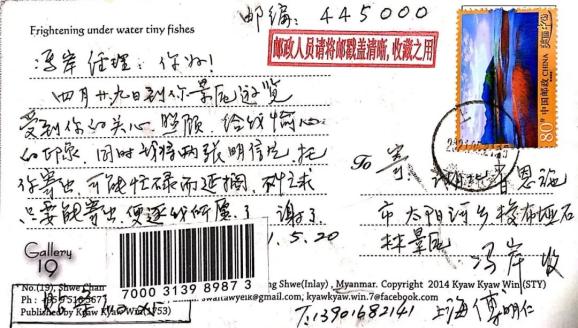 Frightening under water tiny fishes
邮编:445000
邮政人员请将邮戳盖清晰,收藏之用
80分 中国邮政 CHINA
冯岸经理:你好!
四月廿九日到你景区游览
受到你的关心照顾,给我愉心
的印象,同时我将两张明信片,托
你寄出,可能忙碌而延搁,
只要能寄出,便遂我所愿了 谢了
1.5.20
To 寄
湖北省恩施
市太阳河乡梭布垭石
林景区
冯岸 收
Gallery
19
7000 3139 8987 3
No.(19), Shwe Chan
ng Shwe(Inlay) , Myanmar. Copyright 2014 Kyaw Kyaw Win (STY)
swaltawyeik@gmail.com; kyawkyaw.win.7@facebook.com
Published by Kyaw Kyaw Win(1753)
T:13901682141 上海傅明仁